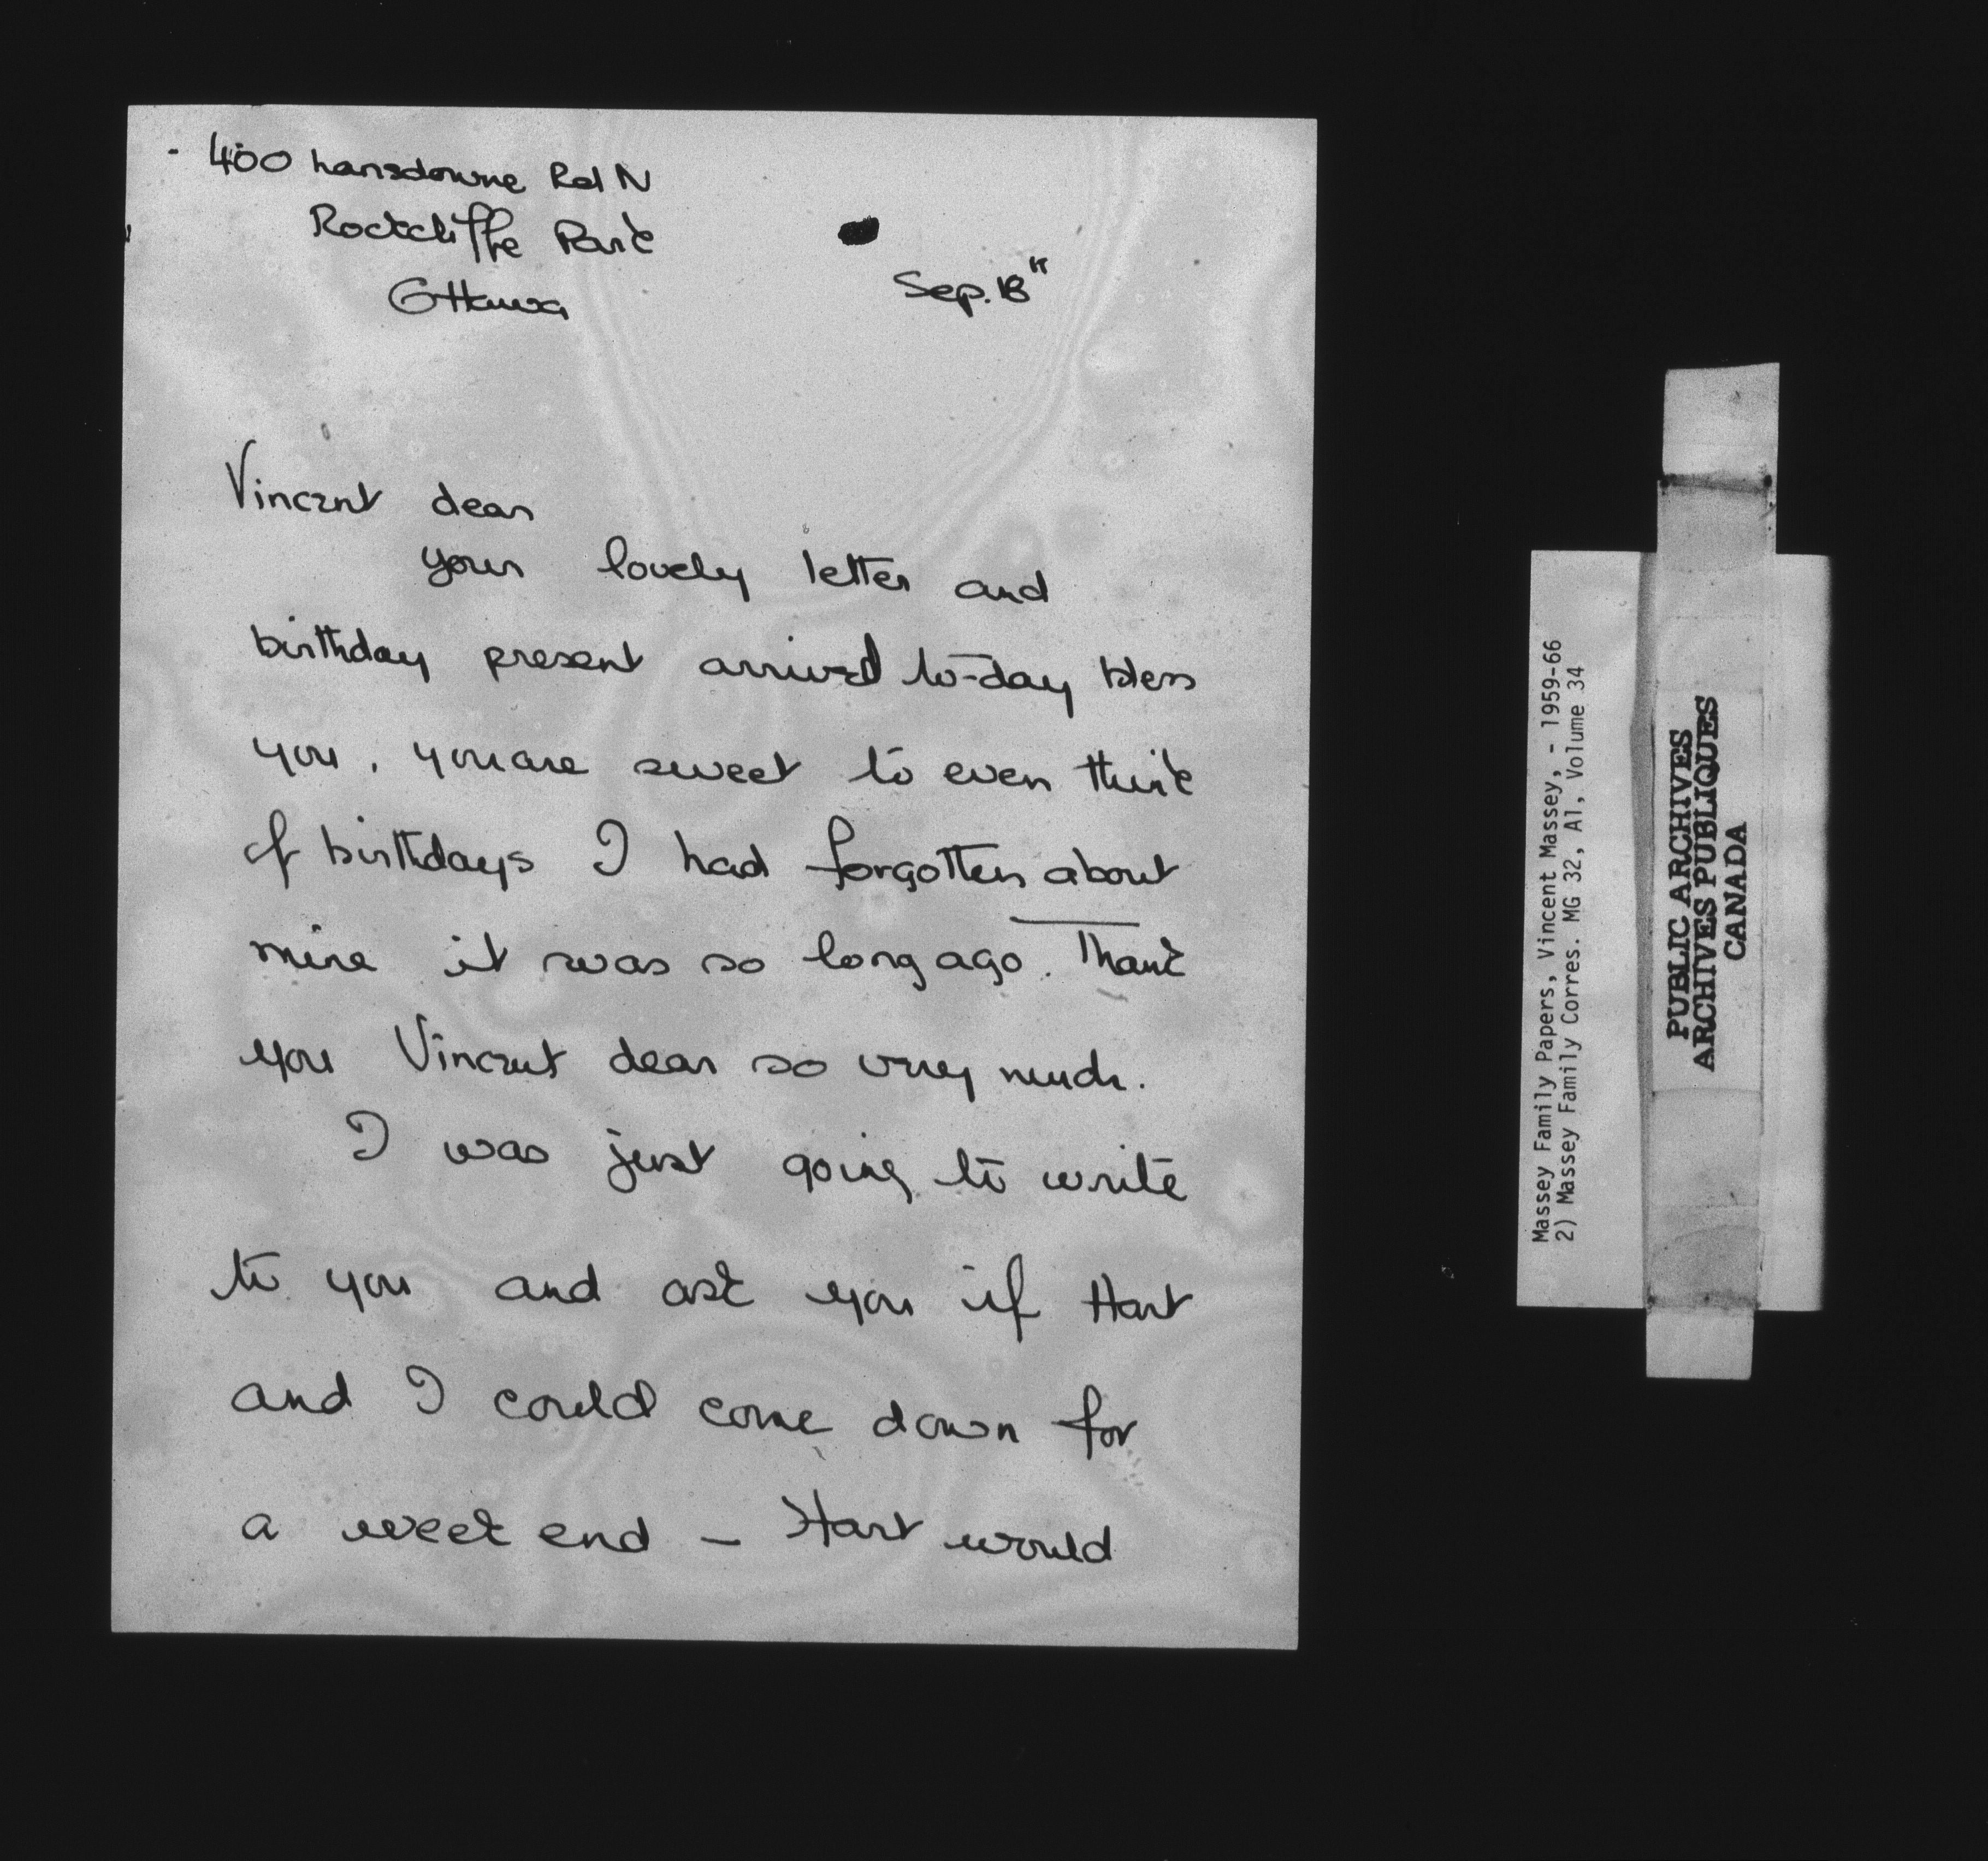 400 Lansdowne Rd N
Rockcliffe Park
Ottawa
Sep. 18"
Vincent dear
your lovely letter and
birthday present arrived to-day bless
you, you are sweet to even think
of birthdays I had forgotten about
mine it was so long ago. Thank
you Vincent dear so very much.
I was just going to write
to you and ask you if Hart
and I could come down for
a week end – Hart would
Massey Family Papers, Vincent Massey, - 1959-66
2) Massey Family Corres. MG 32, A1, Volume 34
PUBLIC ARCHIVES
ARCHIVES PUBLIQUES
CANADA